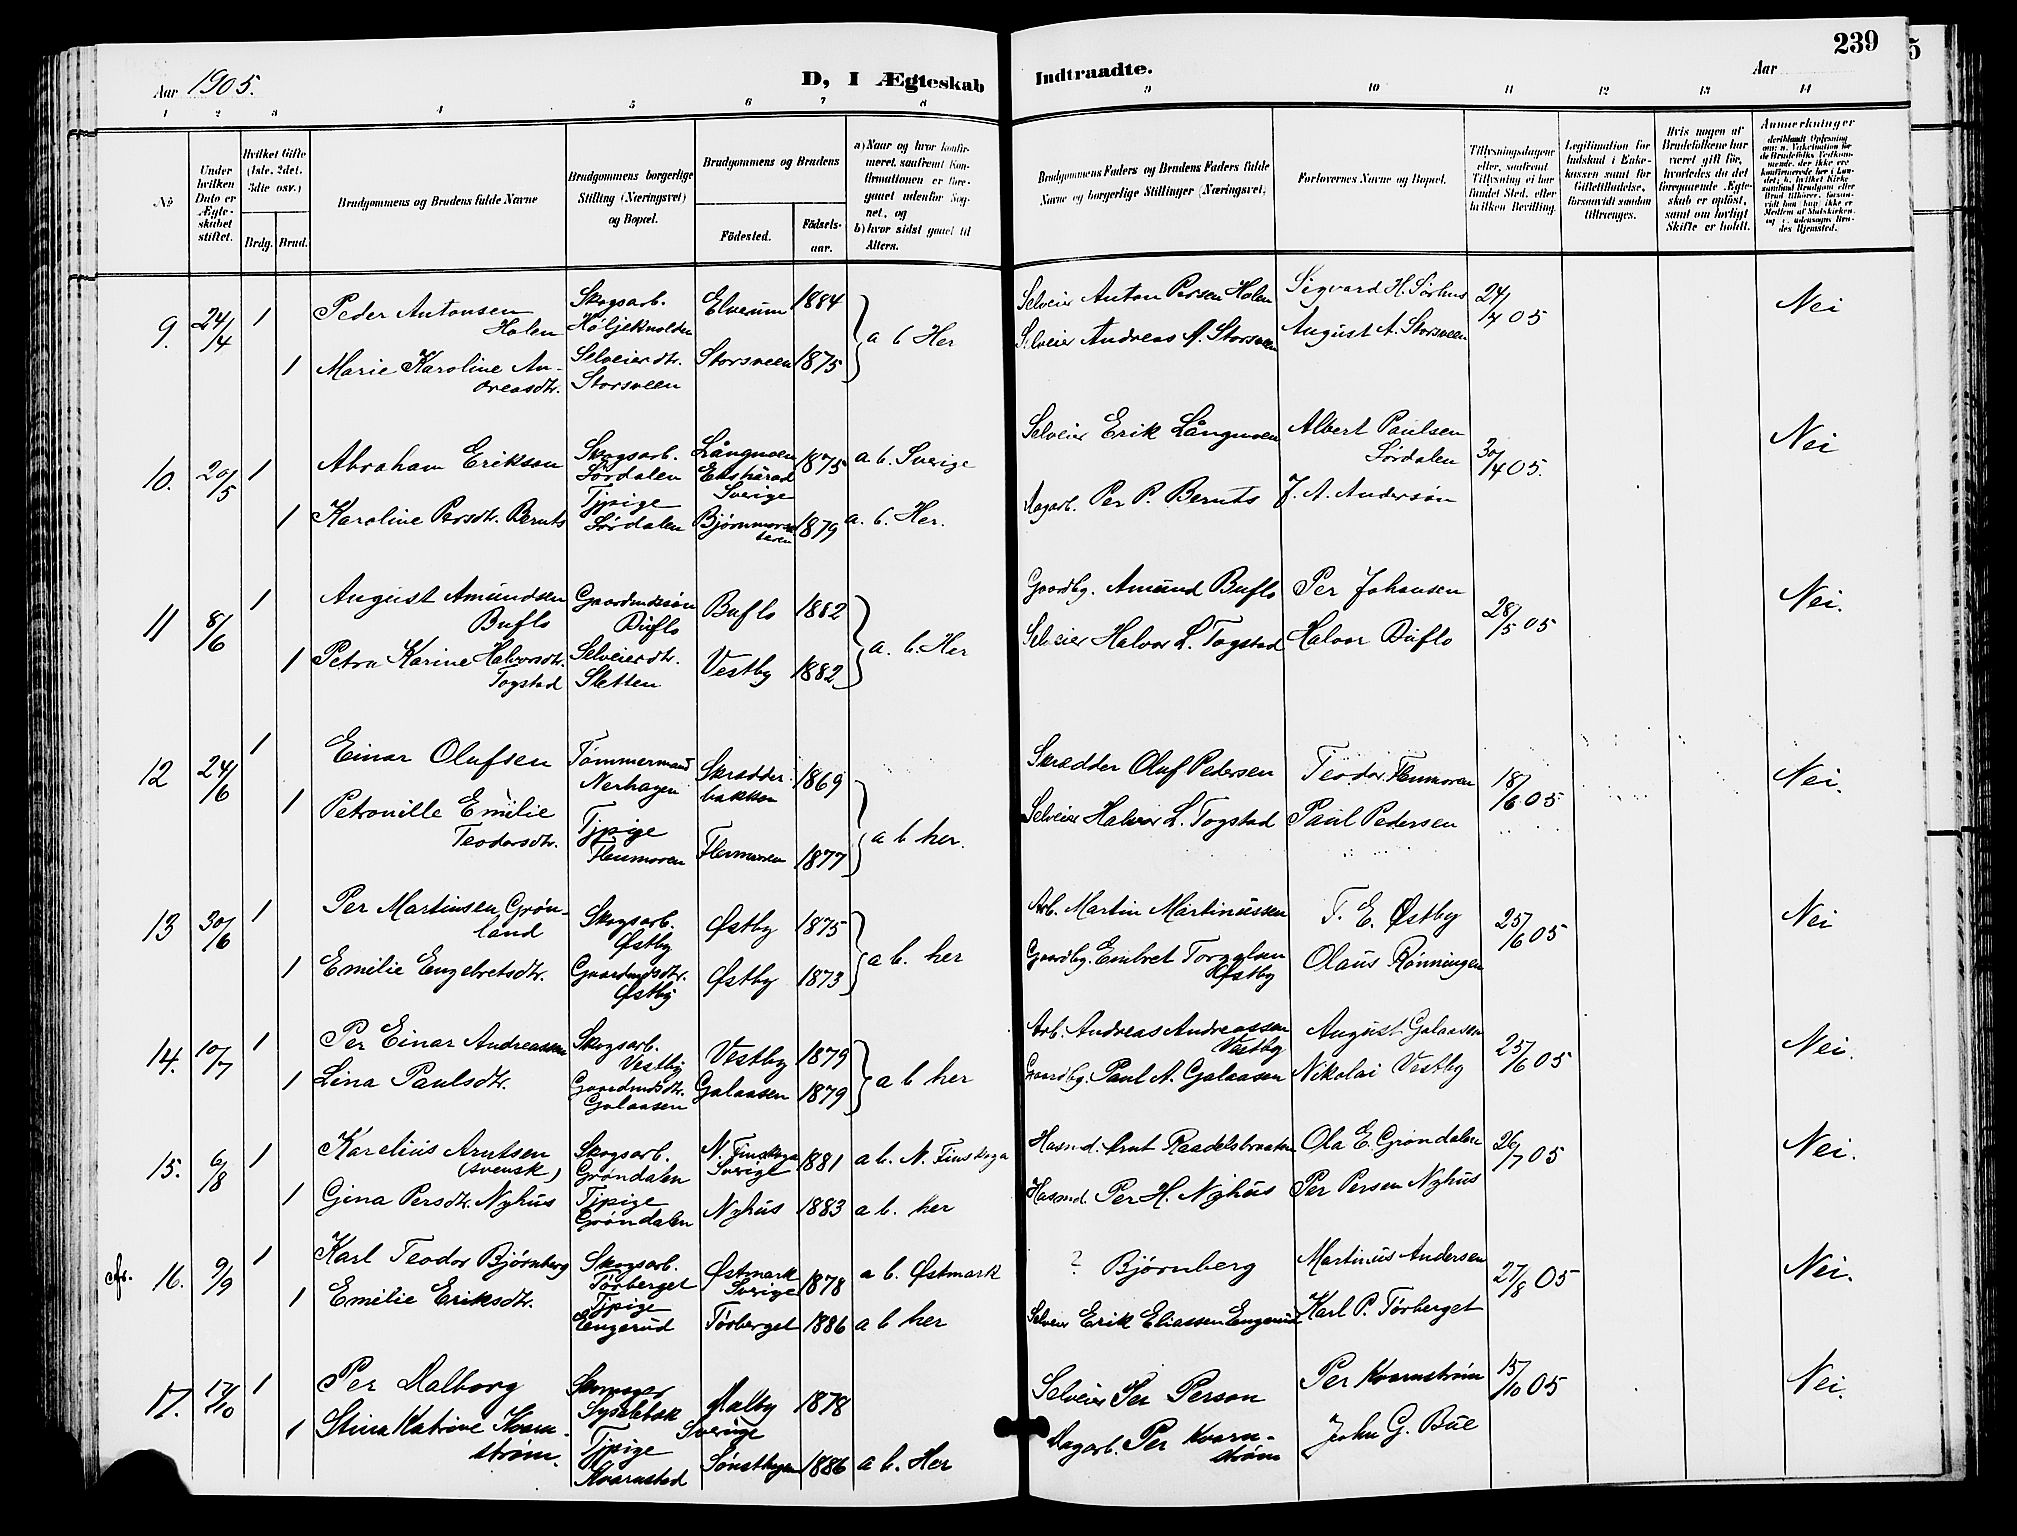 239
Aar 1905.
D, I Ægteskab Indtraadte.
Aar
1 2 3 4 5 6 7 8 9 10 11 12 13 14
No
Under hvilken Dato er Ægteskabet stiftet.
Hvilket Gifte (1ste, 2det, 3die osv.)
Brdg. Brud.
Brudgommens og Brudens fulde Navne
Brudgommens borgerlige Stilling (Næringsvei) og Bopæl.
Brudgommens og Brudens
Födested. Födselsaar.
a) Naar og hvor konfirmeret, saafremt Konfirmationen er foregaaet udenfor Sognet, og
b) hvor sidst gaaet til Alters.
Brudgommens Faders og Brudens Faders fulde Navne og borgerlige Stillinger (Næringsvei)
Forlovernes Navne og Bopæl.
Tillysningsdagene eller, saafremt Tillysning ei har fundet Sted, efter hvilken Bevilling.
Legitimation for Indskud i Enkekassen samt for Giftetilladelse, forsaavidt saadan tiltrænges.
Hvis nogen af Brudefolkene har været gift før, hvorledes da det foregaaende Ægteskab er opløst, samt om lovligt Skifte er holdt.
Anmerkninger
9. 24/4 1 Peder Antonsen Holen Skogsarb. Höljeknolden Elverum 1884 a b Her Selveier Anton Persen Holen Sigvard H. Sørhus 24/4 05 Nei
1 Marie Karoline Andreasdtr. Selveierdtr. Storsveen Storsveen 1875 Selveier Andreas A. Storsveen August A. Storsveen
10. 20/5 1 Abraham Erikson Skogsarb. Sørdalen Långmoen Ekshärad Sverige 1875 a b. Sverige Selveier Erik Långmoen Albert Paulsen Sørdalen 30/4 05. Nei
1 Karoline Persdtr. Beruts Tjpige Sørdalen 1879 a. b. Her. Dagarb. Per P. Beruts J. A. Anderson
11 8/6 1 August Amundsen Buflo Gaardmdssøn Buflo Buflo 1882 a. b. Her Gaardbg. Amund Buflo Per Johansen 28/5 05 Nei.
1 Petra Karine Halvorsdtr. Togstad Selveierdtr. Sletten Vestby 1882 Selveier Halvor L. Togstad Halvor Buflo
12 24/6 1 Einar Olufsen Tømmermand Nerhagen Skrædderbakken 1869 a b her. Skrædder Oluf Pedersen Teodor Flenmoren 18/6 05 Nei.
1 Petronille Emilie Teodorsdtr. Tjpige Flenmoren Flermoren 1877 Selveier Halvor L. Togstad Paul Pedersen
13 30/6 1 Per Martinsen Grønland Skogsarb. Østby Østby 1875 a b. her Arb. Martin Martinussen T. E. Østby 25/6 05 Nei
1 Emilie Engebretsdtr. Gaardmdsdtr. Østby Østby 1873 Gaardbg. Embret Østby Olaus Rønningen
14. 10/7 1 Per Einar Andreassen Skogsarb. Vestby Vestby 1879 a b her Arb. Andreas Andreassen Vestby August Galaasen 25/6 05 Nei.
1 Lina Paulsdtr. Gaardmdsdtr. Galaasen Galaasen 1879 Gaardbg. Paul A. Galaasen Nikolai Vestby
15. 6/8 1 Karelius Arntsen (svensk) Skogsarb. Grøndalen N. Finskoga Sverige 1881 a b. N. Finskoga Husmd. Arnt Raadelsbraaten Ola E. Grøndalen 26/7 05 Nei.
1 Gina Persdtr. Nyhus Tjpige Grøndalen Nyhus 1883 a b. her Husmd. Per H. Nyhus Per Persen Nyhus
16. 9/9 1 Karl Teodor Bjørnberg Skogsarb. Tørberget Østmark Sverige 1878 a b. Østmark ? Bjørnberg Martinus Andersen 27/8 05 Nei.
1 Emilie Eriksdtr. Tjpige Engerud Tørberget 1886 a b her Selveier Erik Eliassen Engerud Karl P. Tørberget
17. 17/10 1 Per Dalborg Dalby Sverige 1878 Selveier Per Person Per Kvarnstrøm 15/10 05 Nei.
1 Stina Katrine Kvarnstrøm. Tjpige Kvarnstad Sønstbyen 1886 a b. Her Dagarb. Per Kvarnstrøm John G. Bue